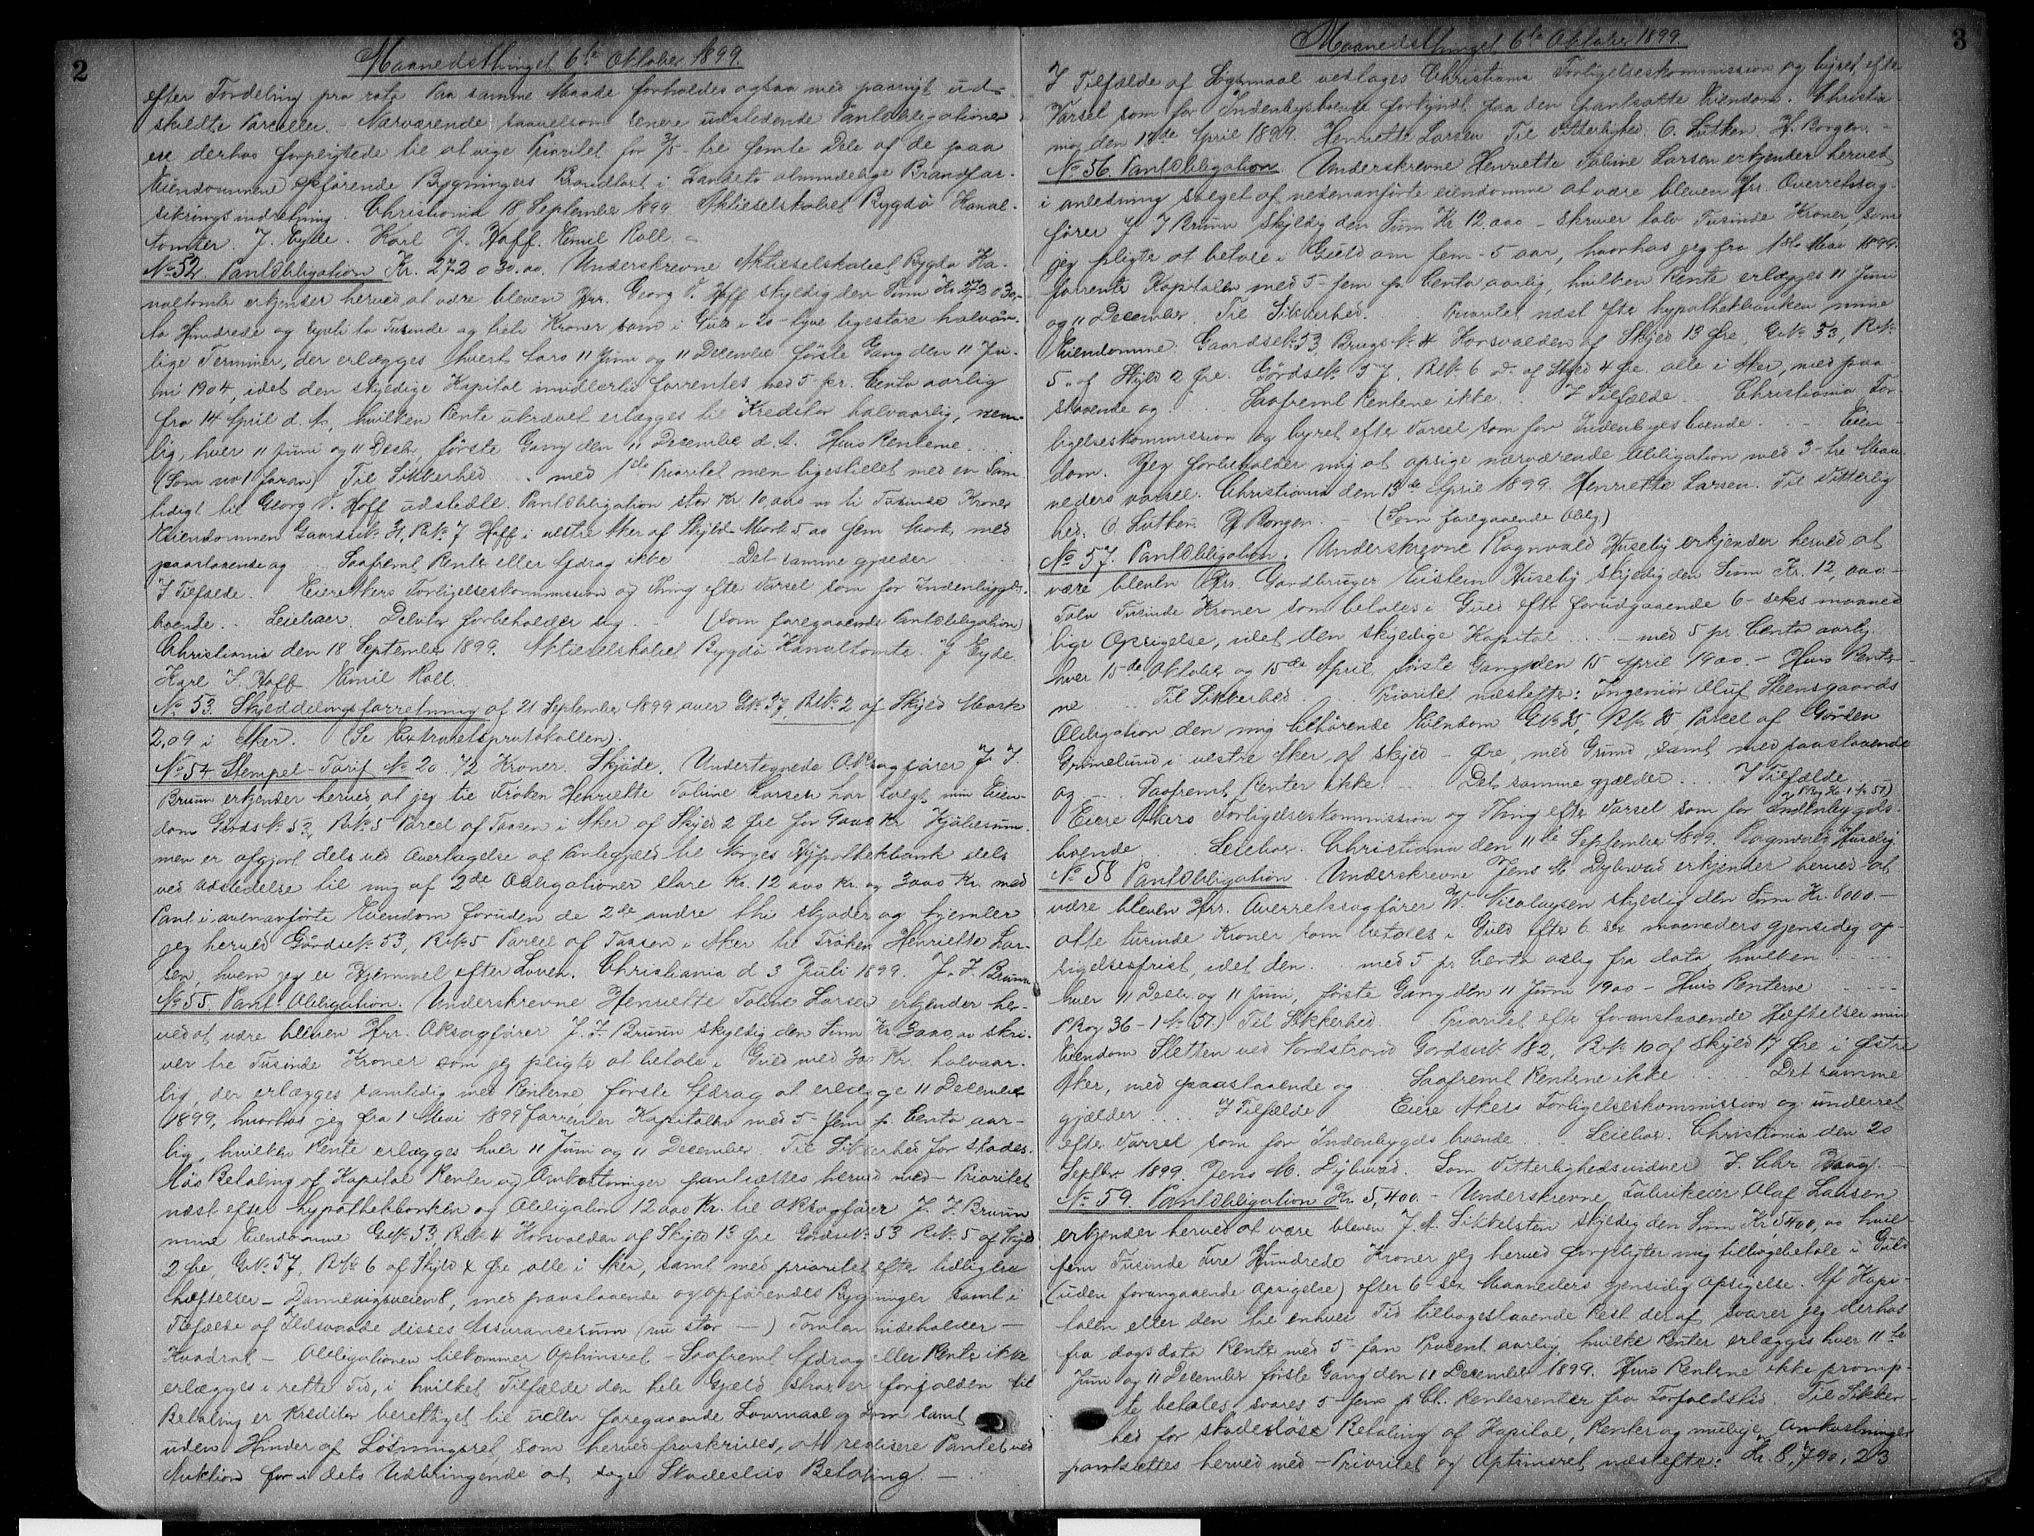 2
Maanedsthinget 6te Oktober 1899.
efter Fordeling pro rata. Paa samme Maade forholdes ogsaa med paany ud-
skildte Parceller. - Nærværende saavelsom senere udstedende Pantobligationer
er derhos forpligtede til at vige Prioritet for 3/5 - tre femte Dele af de paa
Eiendommene opførende Bygningers Brandtaxt i Landets almindelige Brandfor-
sikringsindretning. Christiania 18 September 1899. Aktieselskabet Bygdø Kanal-
tomter. J. Eyde. Karl J. Hoff. Emil Roll.
No 52. Pantobligation Kr. 272 030.00. Underskrevne Aktieselskabet Bygdø Ka-
naltomter erkjender herved at være bleven Hr. Georg V. Hoff skyldig den Sum Kr 272 030,-
to Hundrede og sytti to Tusinde og treti Kroner som i Guld i 20 - tyve ligestore halvaar-
lige Terminer, der erlægges hvert Aars 11 Juni og 11 December første Gang den 11 Ju-
ni 1904, idet den skyldige Kapital imidlertid forrentes med 5 pr. Cento aarlig
fra 14 April d. A., hvilken Rente ukrævet erlægges til Kreditor halvaarlig, nem-
lig, hver 11 Juni og 11 Decbr, første Gang den 11 December d. A. Hvis Renterne ....
(Som no 1 foran) Til Sikkerhed .... med 1ste Prioritet men ligestillet med en sam-
tidigt til Georg V. Hoff udstedt Pantobligation stor Kr 10,000 ti Tusinde Kroner
Eiendommen Gaardsno. 3, Bk No 7 Hoff i vestre Aker af Skyld Mark 5 00 fem Mark, med
paastaaende og .... Saafremt Renter eller Afdrag ikke .... Det samme gjælder ....
I Tilfælde. .. Eiere Akers Forligelseskommission og Thing efter Varsel som for Indenbygds-
boende .. Leieboer. Debitor forbeholder sig .... (Som foregaaende Pantobligation)
Christiania den 18 September 1899. Aktieselskabet Bygdø Kanaltomter. J Eyde
Karl J. Hoff Emil Roll.
No 53. Skylddelingsforretning af 21 September 1899 over Gk. 37, Bk No 2 af Skyld Mark
2,09 i Aker. (Se Extraretsprotokollen).
No 54 Stempel-Tarif No 20. 72 Kroner. Skjøde. Undertegnede O.R. sagfører J. J.
Bruun erkjender herved, at jeg til Frøken Henriette Taline Larsen har solgt min Eien-
dom Gårds No 53, Bk 5 Parcel af Taasen i Aker af Skyld 2 Øre for Kr Kjøbesum-
men er afgjort dels ved Overtagelse af Pantegjæld til Norges Hypothekbank dels
ved Udstedelse til mig af 2de Obligationer store Kr. 12 000 Kr. og 3000 Kr. med
Pant i ovenanførte Eiendom foruden de 2de andre thi skjøder og hjemler
jeg herved Gårdsno. 53, Bk 5 Parcel af Taasen i Aker til Frøken Henriette Lar-
sen, hvem jeg er Hjemmel efter Loven. Christiania d 3 Juli 1899. J. J. Bruun
No 55. Pant-Obligation. Underskrevne Henriette Taline Larsen erkjender her-
ved at være bleven Hr. O.R. sagfører J. J. Bruun skyldig den Sum Kr. 3000,00 skri-
ver tre Tusinde Kroner som jeg pligter at betale i Guld med 300 Kr. halvaar-
lig, der erlægges samtidig med Renterne første Afdrag at erlægge 11 December
1899, hvorhos jeg fra 1 Mai 1899 forrenter Kapitalen med 5 - fem p Cento aar-
lig, hvilken Rente erlægges hver 11 Juni og 11 December. Til Sikkerhed for skades-
løs Betaling af Kapital Renter og Omkostninger pantsættes herved med - Prioritet
næst efter Hypothekbanken og Obligation 12 000 Kr. til O.R. sagfører J. J. Bruun
mine Eiendomme Gk No 53, Bk No 4 Korsvolden af Skyld 13 Øre Gårdsno. 53 Bk No 5 af Skyld
2 Øre, Gk No 57, Bk No 6 af Skyld 4 Øre alle i Aker, samt med prioritet efter tidligere
hæftelser - Dannevigsveien 8, med paastaaende og opførendes Bygninger samt i
Tilfælde af Ildsvaade disses Assurancesum (nu stor —) Tomten indeholder —
Kvadrat - Obligationen tilkommer Optrinsret - Saafremt Afdrag eller Rente ikke
erlægges i rette Tid, i hvilket Tilfælde den hele Gjæld strax er forfalden til
Betaling er Kreditor berettiget til uden foregaaende Lovmaal og Dom samt
uden Hinder af Løsningsret, som herved fraskrives, at realisere Pantet ved
Auktion for i dets Udbringende at søge Skadesløs Betaling. —
3
Maanedsthinget 6te Oktober 1899.
I Tilfælde af Søgsmaal vedtages Christiania Forligelseskommission og byret efter
Varsel som for Indenbysboende forkyndt paa den pantsatte Eiendom. Christia-
nia, den 13de April 1899. Henriette Larsen Til Vitterlighed. O. Lütken. H. Borgen. -
No 56. Pantobligation. Underskrevne Henriette Taline Larsen erkjender herved
i anledning salget af nedenanførte eiendomme at være bleven Hr. Overretssag-
fører J. J Bruun skyldig den Sum Kr 12,000 - skriver tolv Tusinde Kroner, som
jeg pligter at betale i Guld om fem - 5 aar, hvorhos jeg fra 1ste Mai 1899
forrenter Kapitalen med 5 - fem p. Cento aarlig, hvilken Rente erlægges 11 Juni
og 11 December. Til Sikkerhed. .... Prioritet næst efter hypothekbanken mine
Eiendomme. Gaardsno. 53, Brugs No. 4 Korsvolden af Skyld 13 Øre, Gk No. 53, Bk No
5. af Skyld 2 Øre. Gårdsno. 57, Bk No 6 af Skyld 4 Øre. alle i Aker, med paa-
staaende og .... Saafremt Renterne ikke .. I Tilfælde .... Christiania For-
ligelseskommission og byret efter Varsel som for Indenbygdsboende. .... Eien-
dom. Jeg forbeholder mig at opsige nærværende Obligation med 3 - tre Maa-
neders varsel. Christiania den 13de April 1899. Henriette Larsen. Til Vitterlig-
hed. O. Lütken. H. Borgen. - (Som foregaaende Oblig)
No 57. Pantobligation. Underskrevne Ragnvald Huseby erkjender herved at
være bleven Hr. Gaardbruger Eistein Huseby skyldig den Sum Kr. 12,000 -
Tolv Tusinde Kroner som betales i Guld efter forudgaaende 6 - seks maaned-
lige Opsigelse, idet den skyldige Kapital .... med 5 pr. Cento aarlig
hver 15de Oktober og 15de April, første Gang den 15 April 1900. - Hvis Renter-
ne .... Til Sikkerhed .... Prioritet næstefter: Ingeniør Oluf Steensgaards
Obligation den mig tilhørende Eiendom Gk No 25, Bk 25, Parcel af Gården
Grimelund i vestre Aker, af skyld - Øre, med Grund, samt med paastaaende
og .... Saafremt Renter ikke .... Det samme gjælder .... I Tilfælde
(P Reg 36 - 1 No 57)
Eiere Akers Forligelseskommission og Thing efter Varsel som for Indenbygds-
boende .... Leiebor. Christiania den 11te September 1899. Ragnvald Huseby.
No 58 Pantobligation. Underskrevne Jens M. Dybwad erkjender herved at
være bleven Hr. Overretssagfører W. Nicolaysen skyldig den Sum Kr. 8000.-
otte tusinde Kroner som betales i Guld efter 6 sex maaneders gjensidig op-
sigelsesfrist, idet den .... med 5 pr Cento aarlig fra dato, hvilken ....
hver 11 Decbr. og 11 Juni, første Gang den 11 Juni 1900 - Hvis Renterne ....
P Reg 36 - 1 No (57.) Til Sikkerhed .... Prioritet efter foranstaaende Hæftelser min
Eiendom Sletten ved Nordstrand Gårdsno. 182, Bk No. 10 af Skyld 17 Øre i Østre
Aker, med paastaaende og .... Saafremt Renterne ikke .... Det samme
gjælder .... I Tilfælde .... Eiere Akers Forligelseskommission og underret
efter Varsel som for Indenbygds boende .... Leiebor. Christiania den 20
Septbr. 1899 Jens M. Dybwad. Som Vitterlighedsvidner J. Chr Haug. -
No 59. Pantobligation Kr. 5,400. - Underskrevne, Fabrikeier Olaf Larsen
erkjender herved at være bleven J. A. Sikkelsten skyldig den Sum Kr 5400,00 hvil-
fem Tusinde Fire Hundrede Kroner jeg herved forpligter mig tilbagebetale i Guld
(uden forangaaende Opsigelse) efter 6 - sex Maaneders gjensidig Opsigelse. Af Kapi-
talen eller den til enhver Tid tilbagestaaende Rest deraf svarer jeg derhos
fra dags dato Renter med 5 - fem Procent aarlig, hvilke Renter erlægges hver 11te
Juni og 11 December første Gang den 11 December 1899. Hvis Renterne ikke promp-
te betales, svares 5 - fem p Ct. Rentesrenter fra Forfaldstid. Til Sikker-
hed for skadesløse Betaling af Kapital, Renter og mulige Omkostninger
pantsættes herved med - Prioritet og Optrinsret næstefter: Kr. 8,790,23